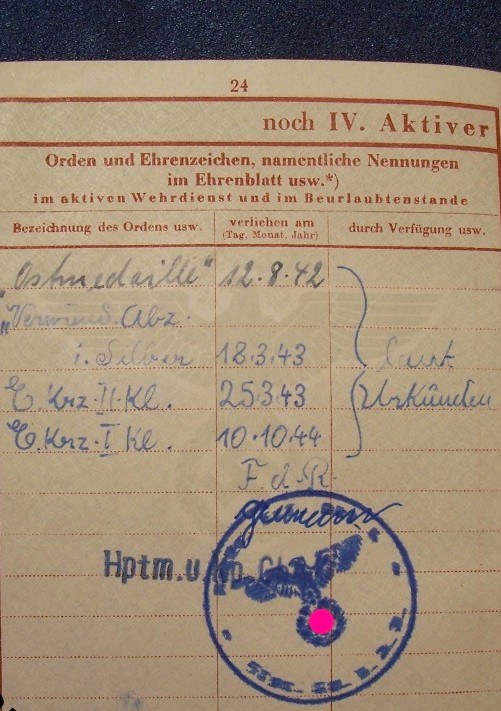 24
noch IV. Aktiver
Orden und Ehrenzeichen, namentliche Nennungen
im Ehrenblatt usw.*)
im aktiven Wehrdienst und im Beurlaubtenstande
Bezeichnung des Ordens usw.
verliehen am
(Tag, Monat, Jahr)
durch Verfügung usw.
„Ostmedaille" 12.8.42
„Verwund. Abz.
i. Silber 18.3.43 laut
E. Krz. II. Kl. 25.3.43 Urkunden
E. Krz. I Kl. 10.10.44
F. d. R.
Hptm. u.